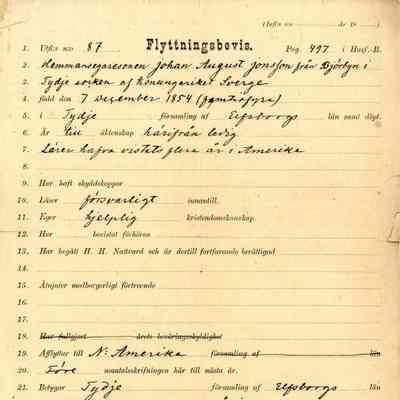 (Inf:s n:o        år 18    .)
1. Utfl:s n:o 87 Flyttningsbevis. Pag. 497 i Husf.-B.
2. Hemmansegaresonen Johan August Jonsson från Björbyn i
3. Tydje socken af konungariket Sverge
4. född den 7 Dezember 1854 (femtiofyra)
5. i Tydje församling af Elfsborgs län samt döpt.
6. Är till äktenskap härifrån ledig
7. Lärer hafva vistats flera år i Amerika
8.
9. Har haft skyddskoppor
10. Läser försvarligt innantill.
11. Eger hjelplig kristendomskunskap.
12. Har bevistat förhören
13. Har begått H. H. Nattvard och är dertill fortfarande berättigad
14.
15. Åtnjuter medborgerligt förtroende
16.
17.
18. Har fullgjort årets beväringsskyldighet
19. Afflyttar till N. Amerika församling af län
20. Före mantalsskrifningen här till nästa år.
21. Betygar Tydje församling af Elfsborgs län